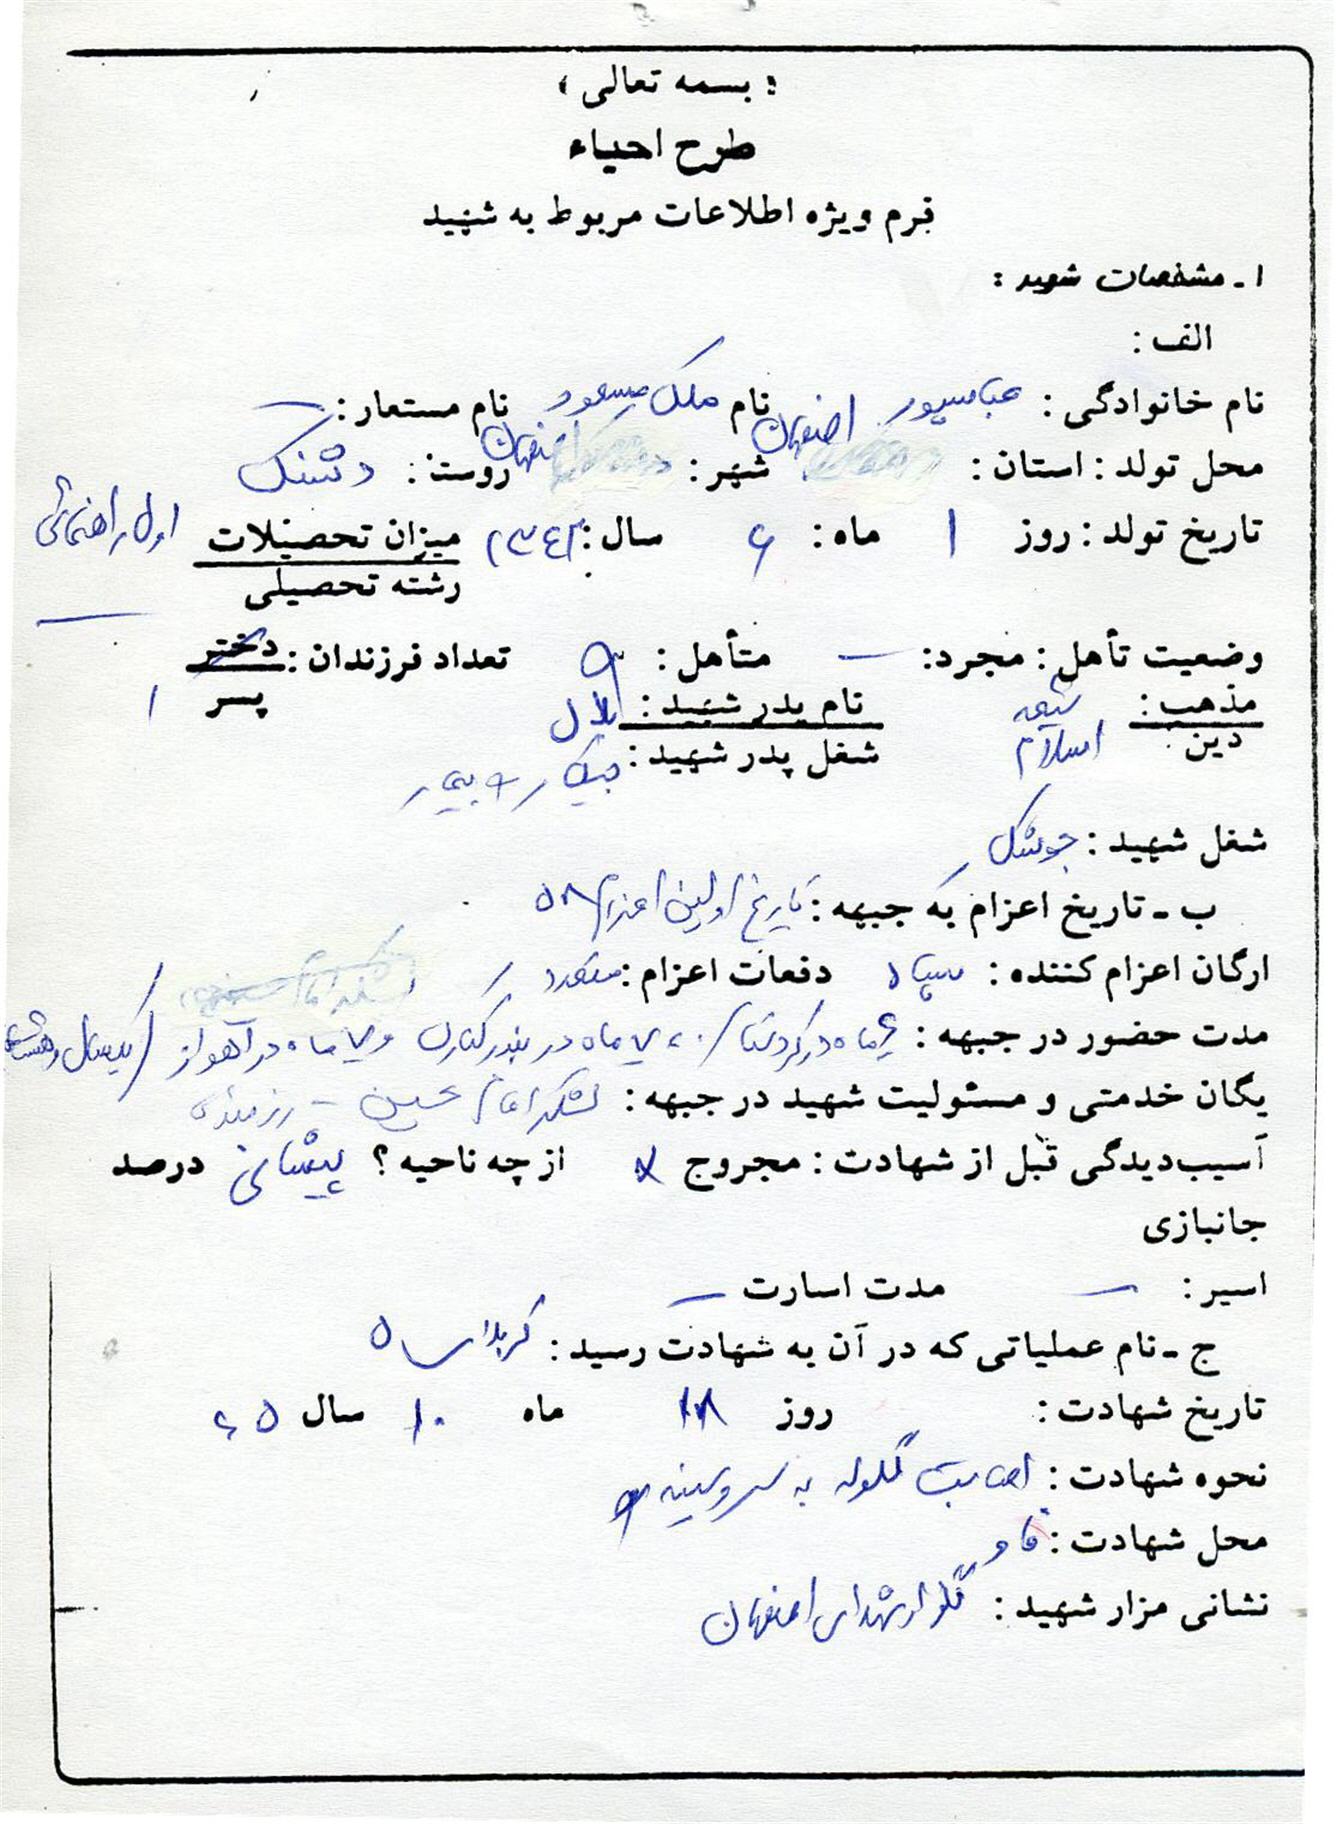 « بسمه تعالی »
طرح احیاء
فرم ویژه اطلاعات مربوط به شهید
۱ ـ مشخصات شهید :
الف :
نام خانوادگی : عباسپور نام ملک مسعود نام مستعار : —
محل تولد : استان : اصفهان شهر : اصفهان روستا : دشتک
تاریخ تولد : روز ۱ ماه : ۶ سال : ۱۳۴۲ میزان تحصیلات اول راهنمائی
رشته تحصیلی —
وضعیت تأهل : مجرد : — متأهل : تعداد فرزندان : دختر
مذهب : شیعه نام پدر شهید : بلال پسر ۱
دین اسلام شغل پدر شهید : بیکار و بیمار
شغل شهید : جوشکار
ب ـ تاریخ اعزام به جبهه : تاریخ اولین اعزام ۵۸
ارگان اعزام کننده : سپاه دفعات اعزام : متعدد
مدت حضور در جبهه : ۶ ماه در کردستان / ۷ ماه در بندر کنارک و ۷ ماه در آهواز / یکسال
یگان خدمتی و مسئولیت شهید در جبهه : لشکر امام حسین - رزمنده
آسیب‌دیدگی قبل از شهادت : مجروح × از چه ناحیه ؟ پیشانی درصد
جانبازی
اسیر : — مدت اسارت —
ج ـ نام عملیاتی که در آن به شهادت رسید : کربلای ۵
تاریخ شهادت : روز ۱۸ ماه ۱۰ سال ۶۵
نحوه شهادت : اصابت گلوله به سر و سینه
محل شهادت : فاو
نشانی مزار شهید : گلزار شهدای اصفهان